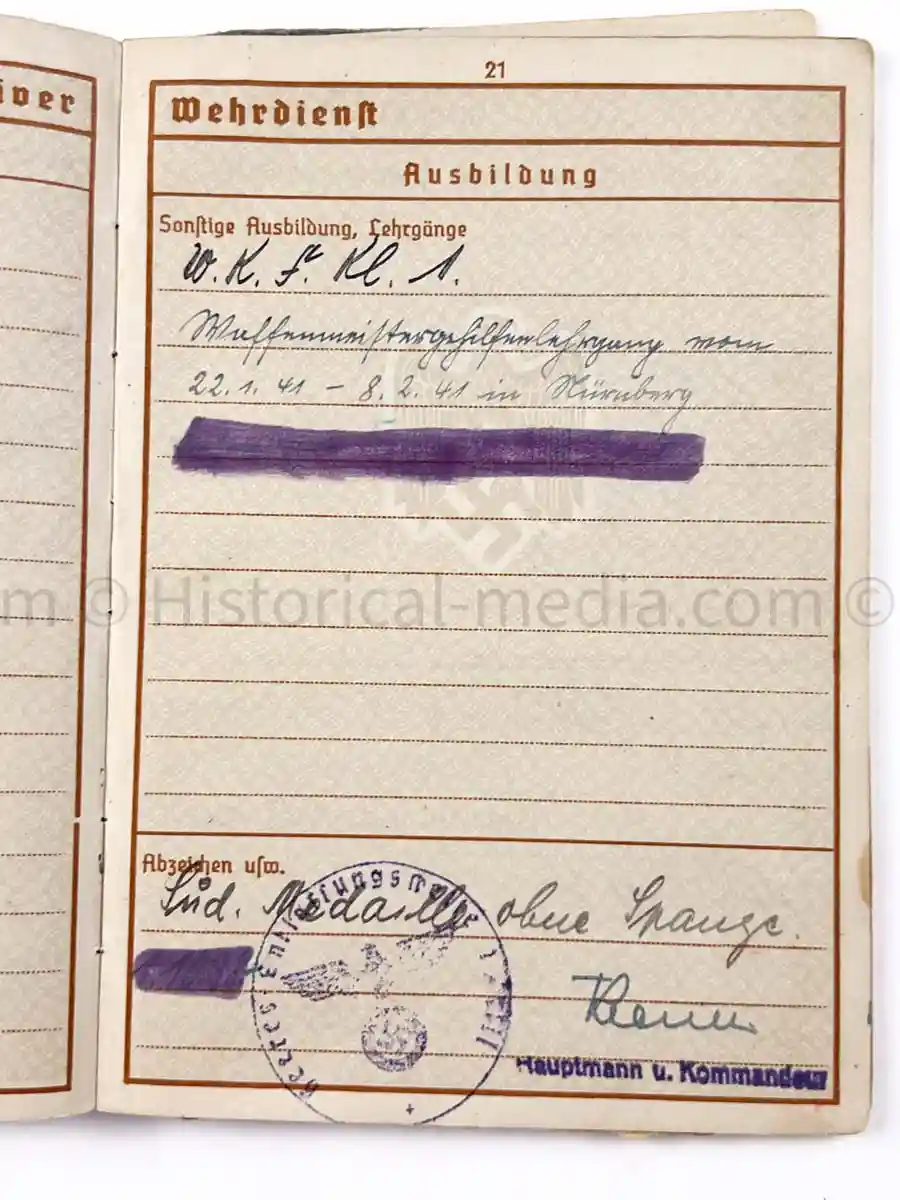 iver
21
Wehrdienst
Ausbildung
Sonstige Ausbildung, Lehrgänge
W. K. Fr. Kl. 1.
Waffenmeistergehilfenlehrgang vom
22.1.41 – 8.2.41 in Nürnberg
m © Historical-media.com ©
Abzeichen usw.
Sud. Medaille ohne Spange.
Heeresentlassungsstelle
Hauptmann u. Kommandeur